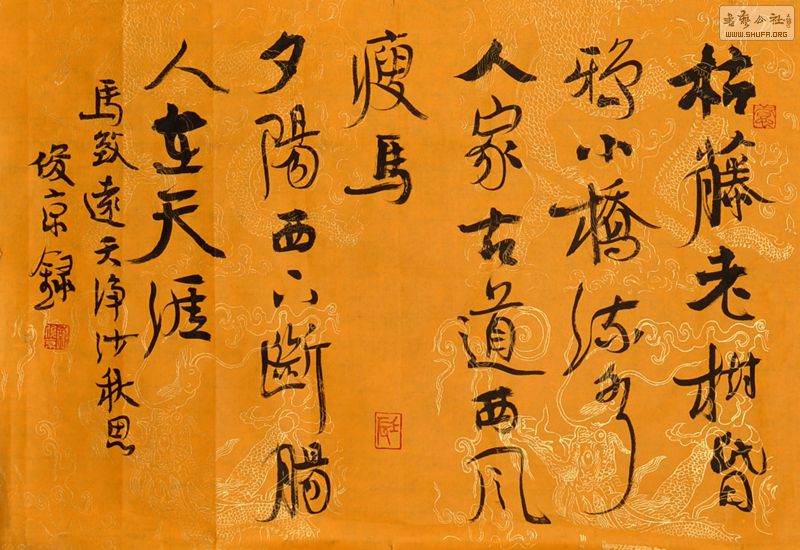 枯藤老樹昏
鴉小橋流水
人家古道西風
瘦馬
夕陽西下斷腸
人在天涯
馬致遠天淨沙秋思
俊京錄
書藝公社
WWW.SHUFA.ORG